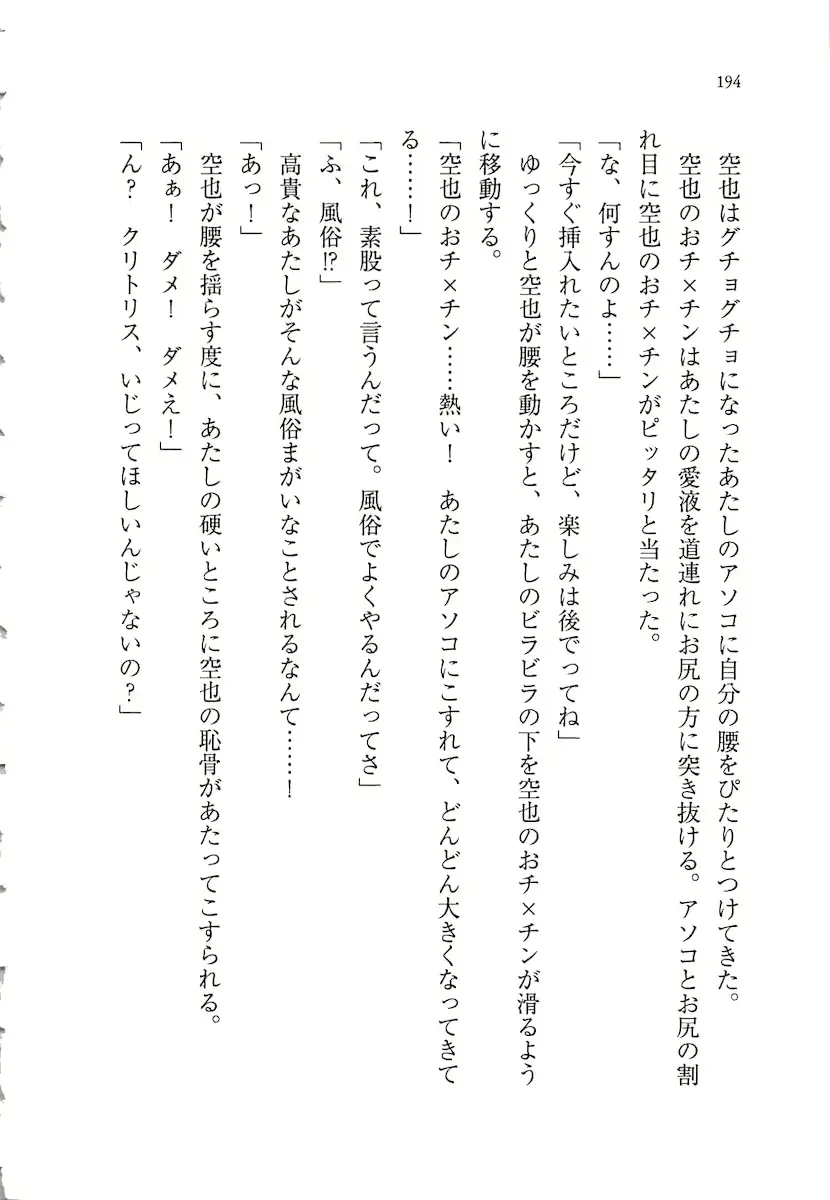 194
空也はグチョグチョになったあたしのアソコに自分の腰をぴたりとつけてきた。
空也のおチ×チンはあたしの愛液を道連れにお尻の方に突き抜ける。アソコとお尻の割
れ目に空也のおチ×チンがピッタリと当たった。
「な、何すんのよ……」
「今すぐ挿入れたいところだけど、楽しみは後でってね」
ゆっくりと空也が腰を動かすと、あたしのビラビラの下を空也のおチ×チンが滑るよう
に移動する。
「空也のおチ×チン……熱い！　あたしのアソコにこすれて、どんどん大きくなってきて
る……！」
「これ、素股って言うんだって。風俗でよくやるんだってさ」
「ふ、風俗!?」
高貴なあたしがそんな風俗まがいなことされるなんて……！
「あっ！」
空也が腰を揺らす度に、あたしの硬いところに空也の恥骨があたってこすられる。
「あぁ！　ダメ！　ダメえ！」
「ん？　クリトリス、いじってほしいんじゃないの？」